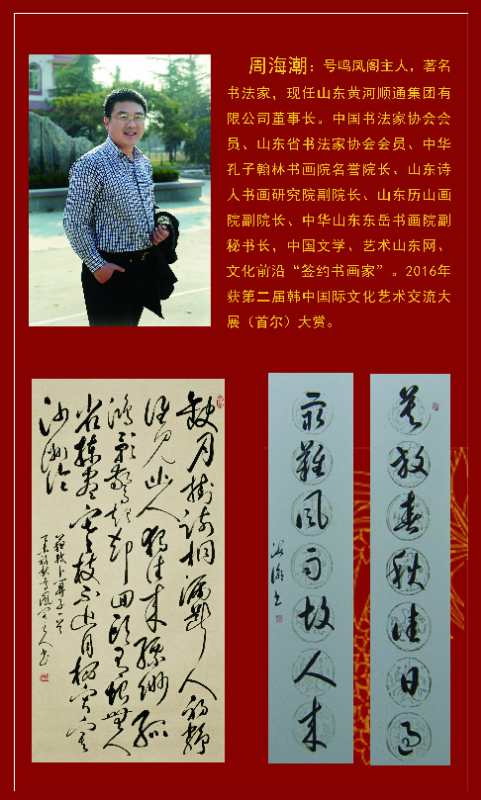 周海潮：号鸣凤阁主人，著名
书法家，现任山东黄河顺通集团有
限公司董事长。中国书法家协会会
员、山东省书法家协会会员、中华
孔子翰林书画院名誉院长、山东诗
人书画研究院副院长、山东历山画
院副院长、中华山东东岳书画院副
秘书长，中国文学、艺术山东网、
文化前沿“签约书画家”。2016年
获第二届韩中国际文化艺术交流大
展（首尔）大赏。
缺月掛疏桐漏斷人初靜
谁見幽人獨往来縹緲孤
鴻影驚起却回頭有恨無人
省揀盡寒枝不肯栖寂寞
沙洲冷
蘇軾卜算子一首
莫放春秋佳日過
最難風雨故人来
海潮书